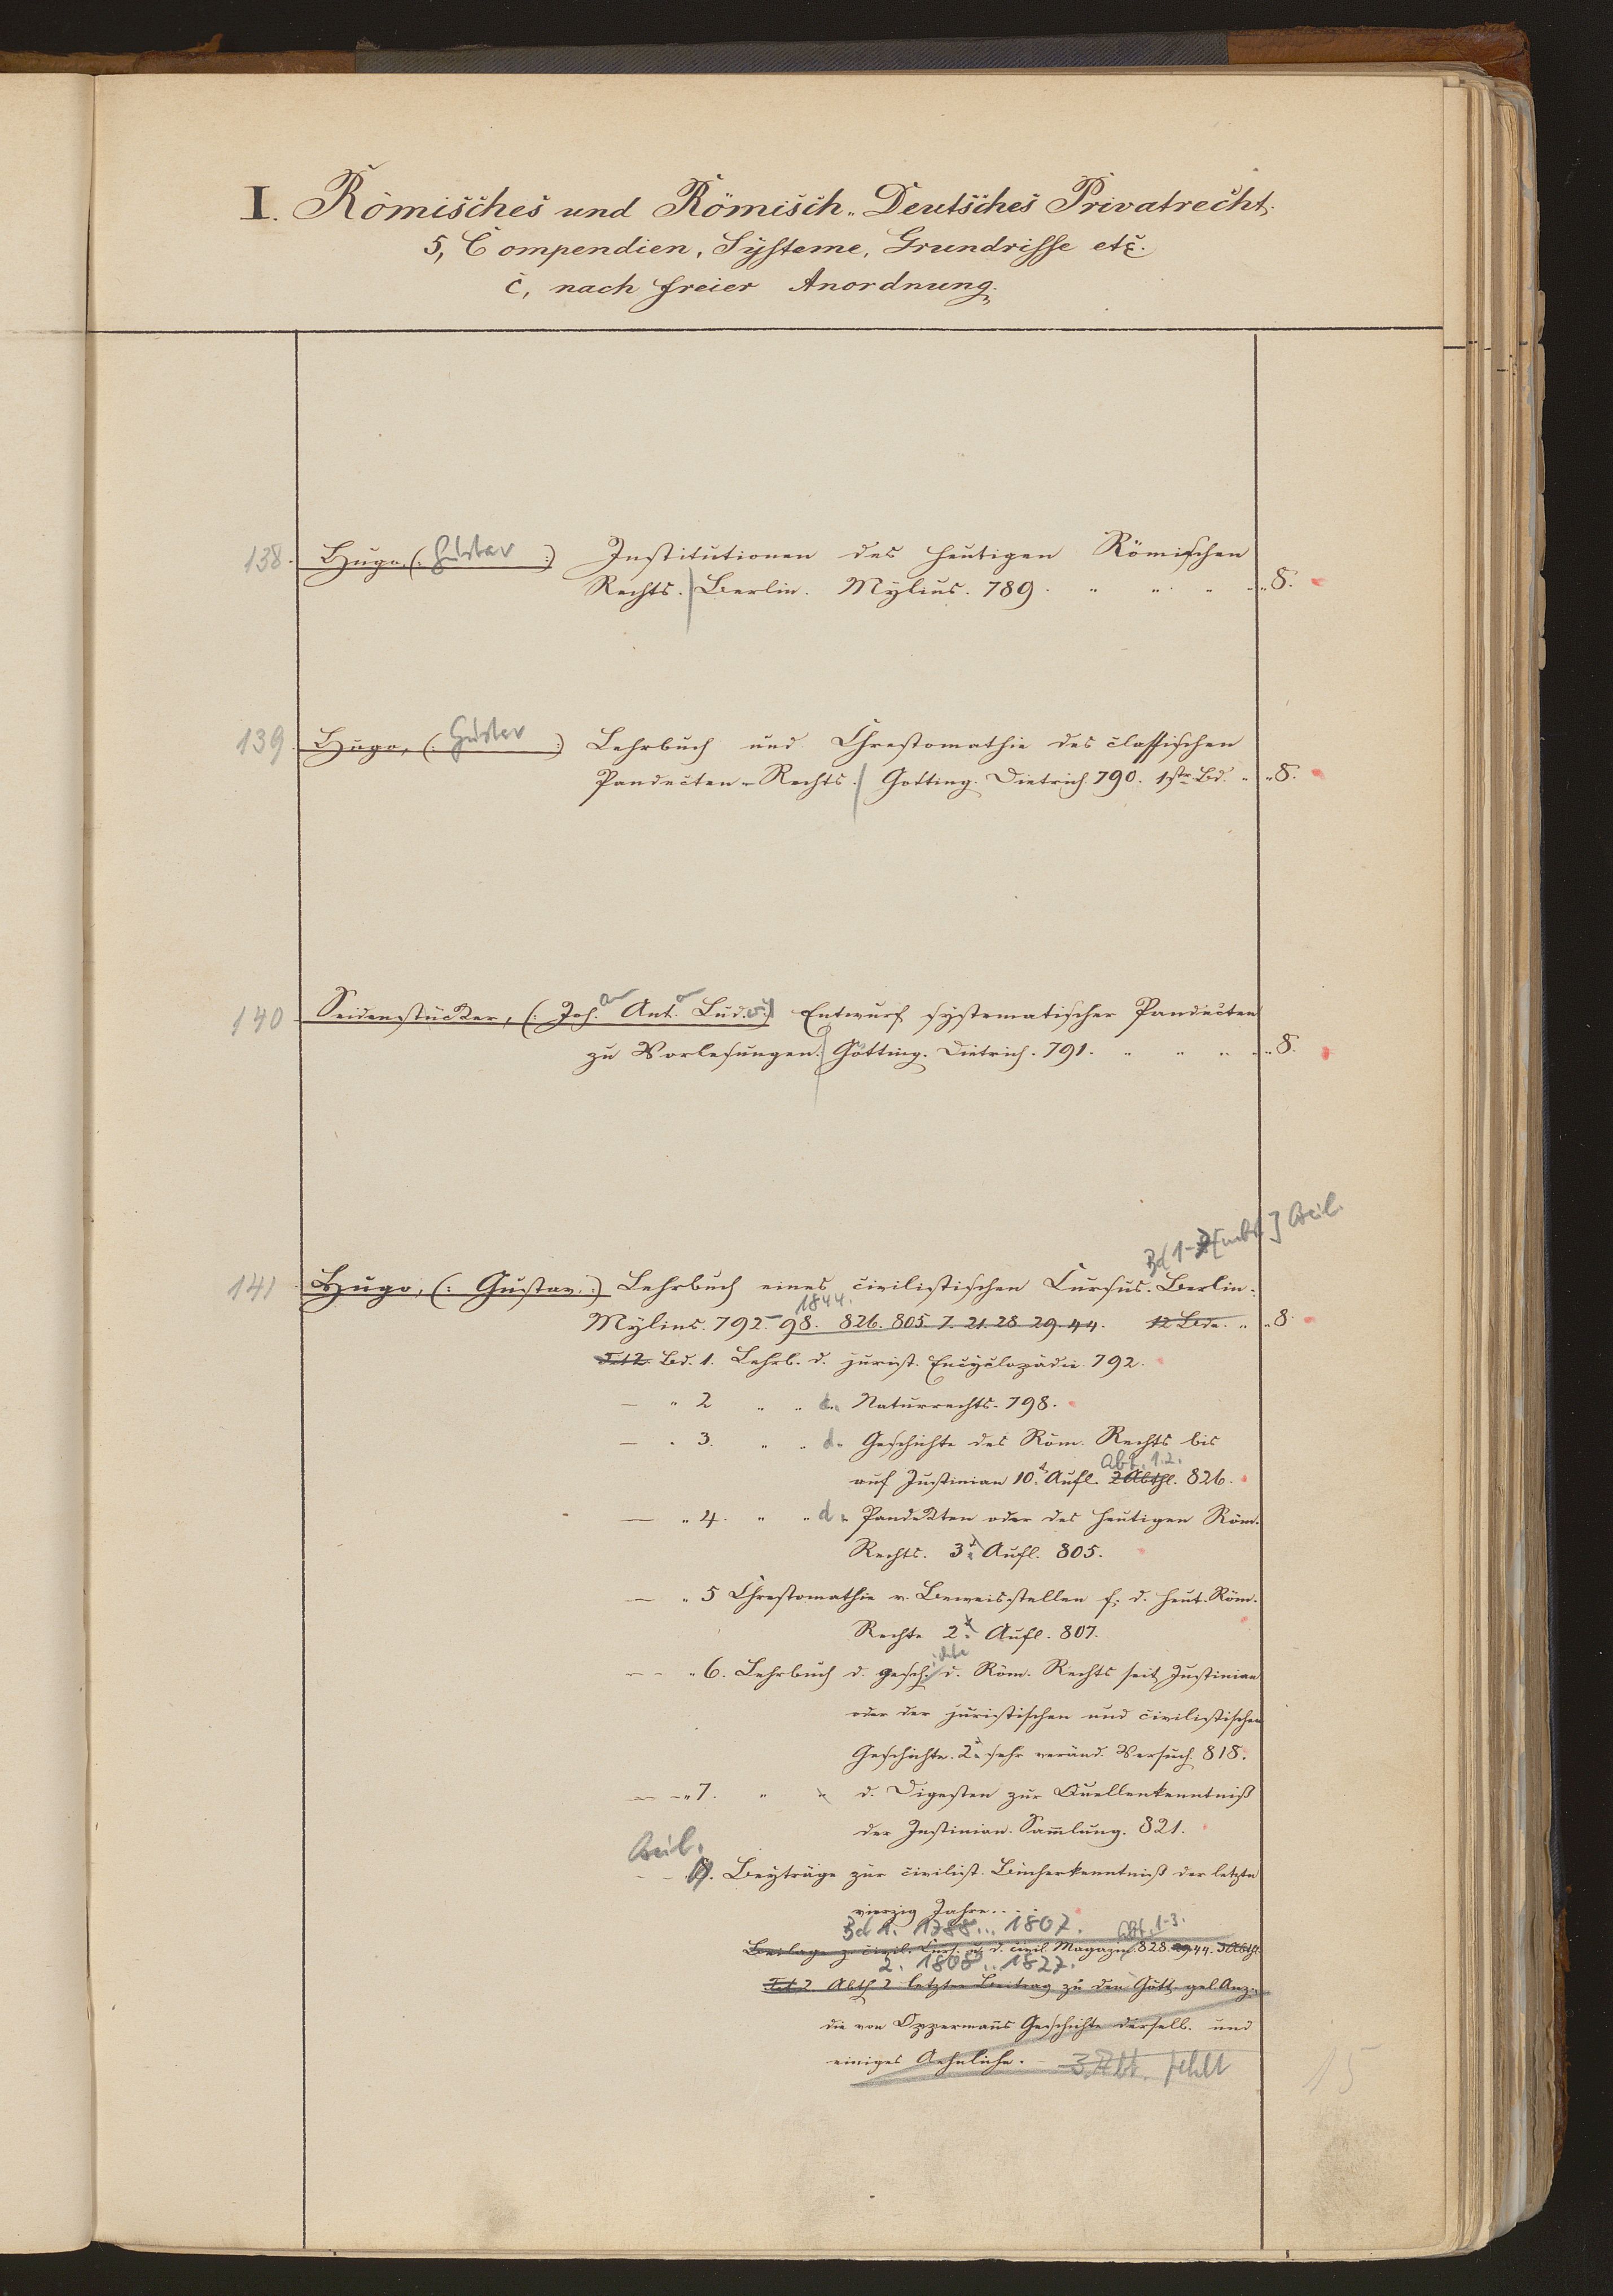 I. Römisches und Römisch-Deutsches Privatrecht.
5, Compendien, Systeme, Grundrisse etc.
c, nach freier Anordnung.
138. Hugo, (: Gustav :) Institutionen des heutigen Römischen
Rechts. Berlin. Mylius. 789. 8.
139. Hugo, (: Gustav :) Lehrbuch und Chrestomathie des classischen
Pandecten-Rechts. Götting. Dietrich. 790. 1str Bd. 8.
140 Seidenstücker, (: Joh. Ant. Lud. :) Entwurf systematischer Pandecten
zu Vorlesungen. Götting. Dietrich. 791. 8.
Bd 1-7 Beil.
141 Hugo, (: Gustav :) Lehrbuch eines civilistischen Cursus. Berlin.
1844.
Mylius. 792-98. 826. 805. 7. 21. 28 29. 44. 12 Bde. 8.
T. 12 Bd. 1. Lehrb. d. jurist. Encyclopädie. 792.
— " 2 " " d. Naturrechts. 798.
— " 3. " " d. Geschichte des Röm. Rechts bis
Abt. 1.2.
auf Justinian 10t Aufl. 2 Abthl. 826.
— " 4. " " d. Pandekten oder des heutigen Röm.
Rechts. 3t Aufl. 805.
— " 5 Chrestomathie v. Beweisstellen f. d. heut. Röm.
Rechte 2t Aufl. 807.
— " 6. Lehrbuch d. Gesch.ichte d. Röm. Rechts seit Justinian
oder der juristischen und civilistischen
Geschichte. 2t sehr veränd. Versuch. 818.
— " 7. " " d. Digesten zur Quellenkenntniß
der Justinian. Sammlung. 821.
Beil.
Beyträge zur civilist. Bücherkenntniß der letzten
vierzig Jahre...
Bd 1. 1788... 1807. Abt. 1-3.
Beilage z. civil. Curs. u. d. civil. Magazin. 828. 29. 44. 3 Abthl.
2. 1808... 1827.
Abth 2 letzter Beitrag zu den Gött. gel. Anz.
die von Oppermanns Geschichte derselb. und
einiges Aehnliche. 3. Abt. fehlt
15